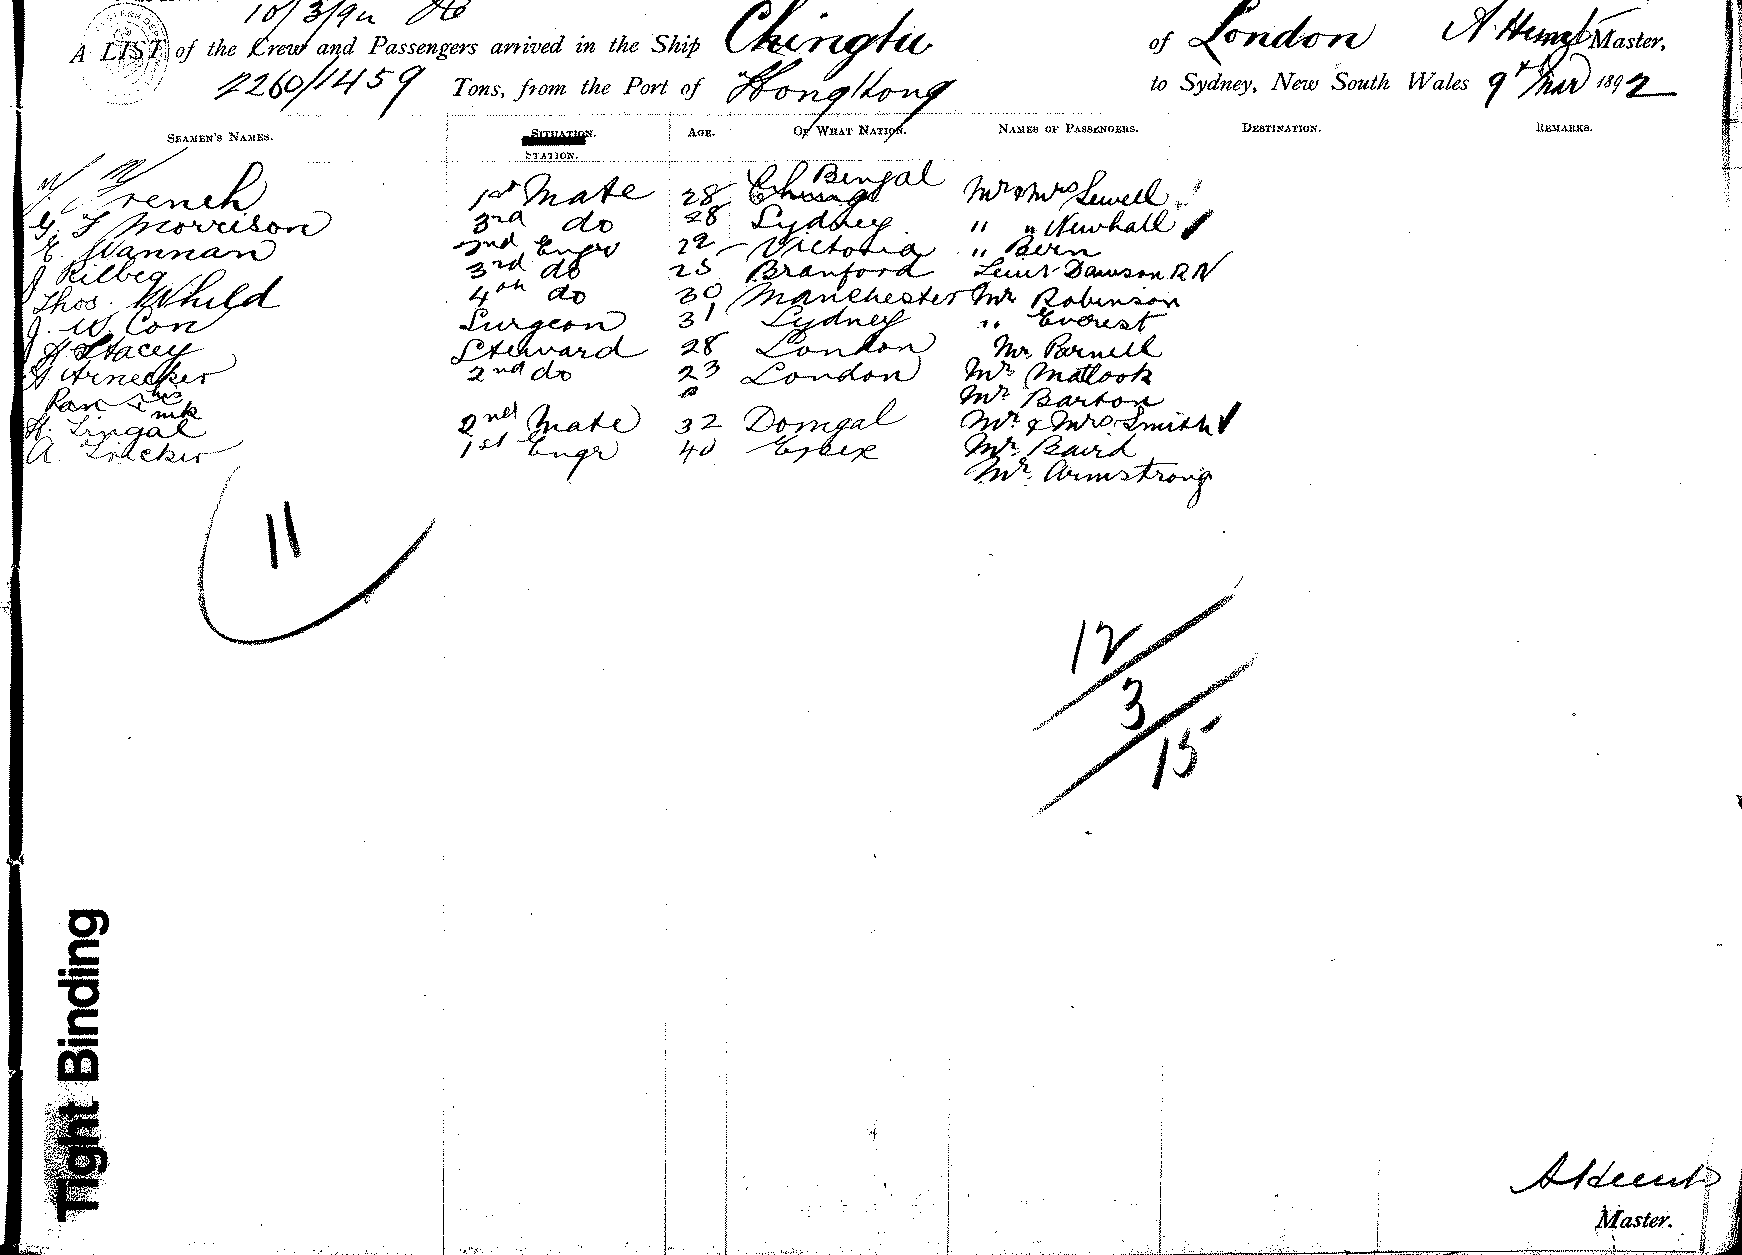 10/3/92
A LIST of the Crew and Passengers arrived in the Ship Chingtu of London A. Hunt Master,
2260/1459 Tons, from the Port of Hong Kong to Sydney, New South Wales 9th Mar 1892
SEAMEN'S NAMES. SITUATION. STATION. AGE. OF WHAT NATION. NAMES OF PASSENGERS. DESTINATION. REMARKS.
French 1st Mate 28 Bengal Mr & Mrs Sewell
G. F Morrison 3rd do 28 Sydney " " Newhall
E. Wannan 2nd Engr 22 Victoria " Bern
J Kilbeg 3rd do 25 Branford Lieut Dawson RN
Thos. Whild 4th do 30 Manchester Mr Robinson
J. W. Con Surgeon 31 Sydney " Everest
Stacey Steward 28 London Mr. Parnell
Arnecker 2nd do 23 London Mr Matlook
Mr Barton
Lingal 2nd Mate 32 Donegal Mr & Mrs Smith
A. Tricker 1st Engr 40 Essex Mr Baird
Mr. Armstrong
11
12
3
15
Tight Binding
A Hunt
Master.